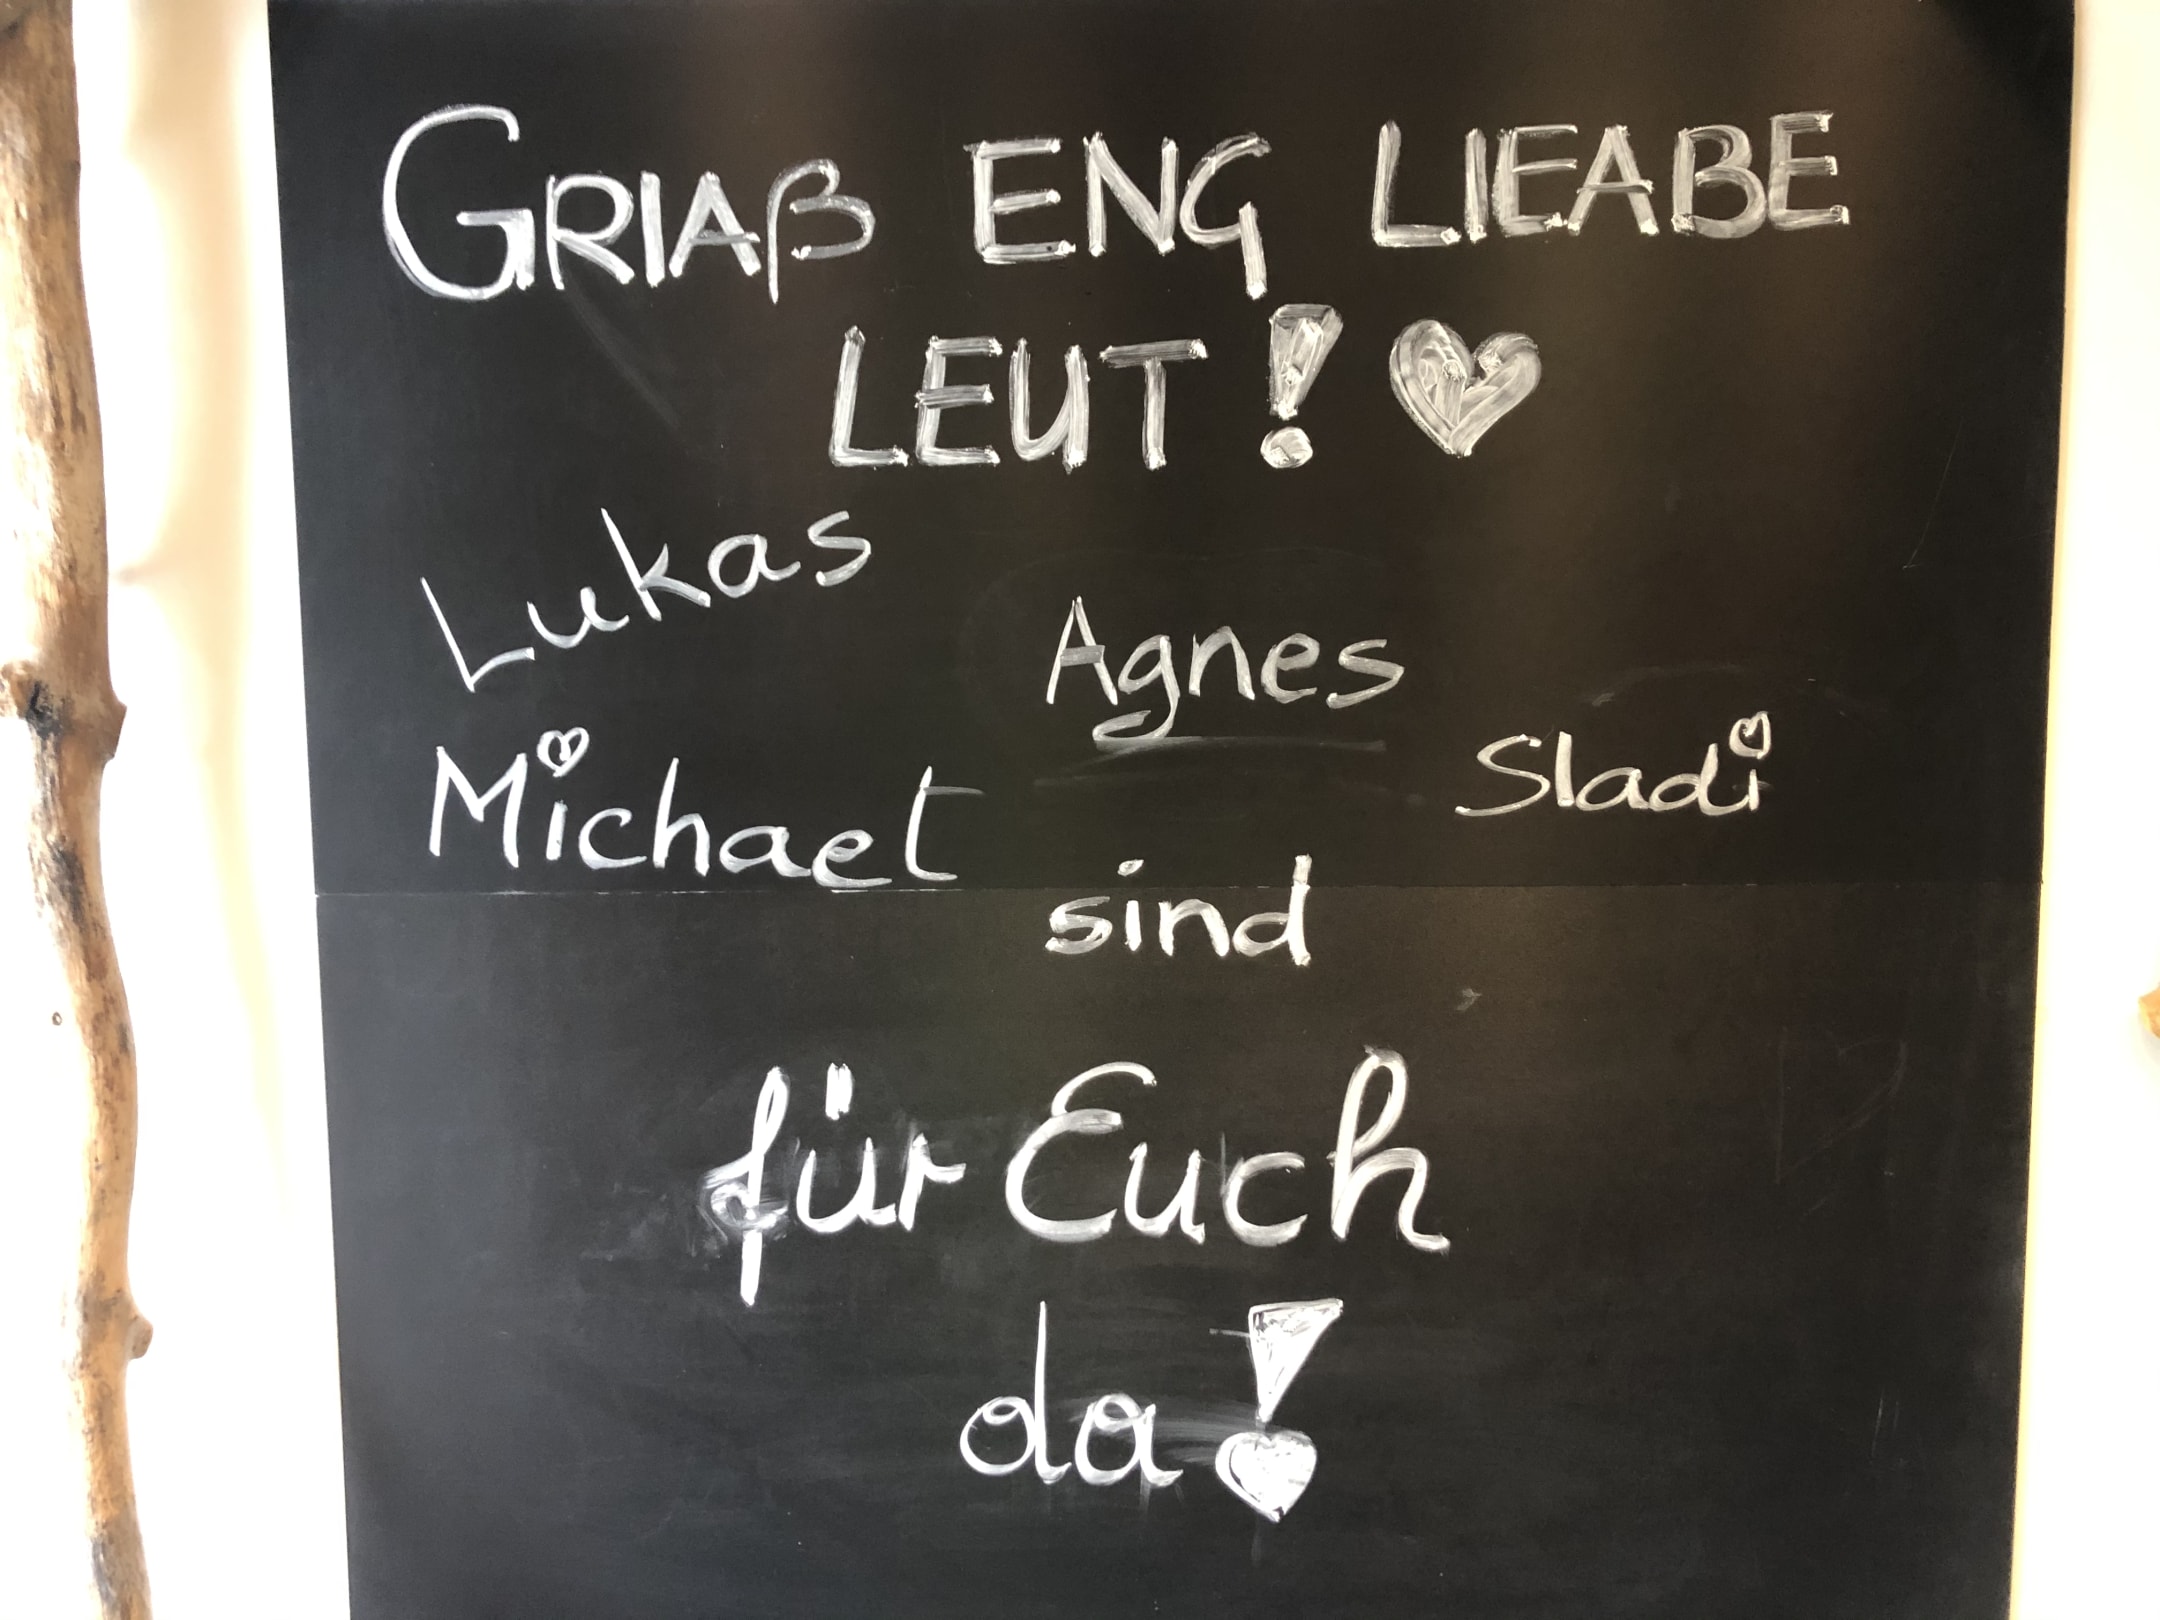 GRIAß ENG LIEABE
LEUT! ♥
Lukas
Agnes
Michael
Sladi
sind
für Euch
da!